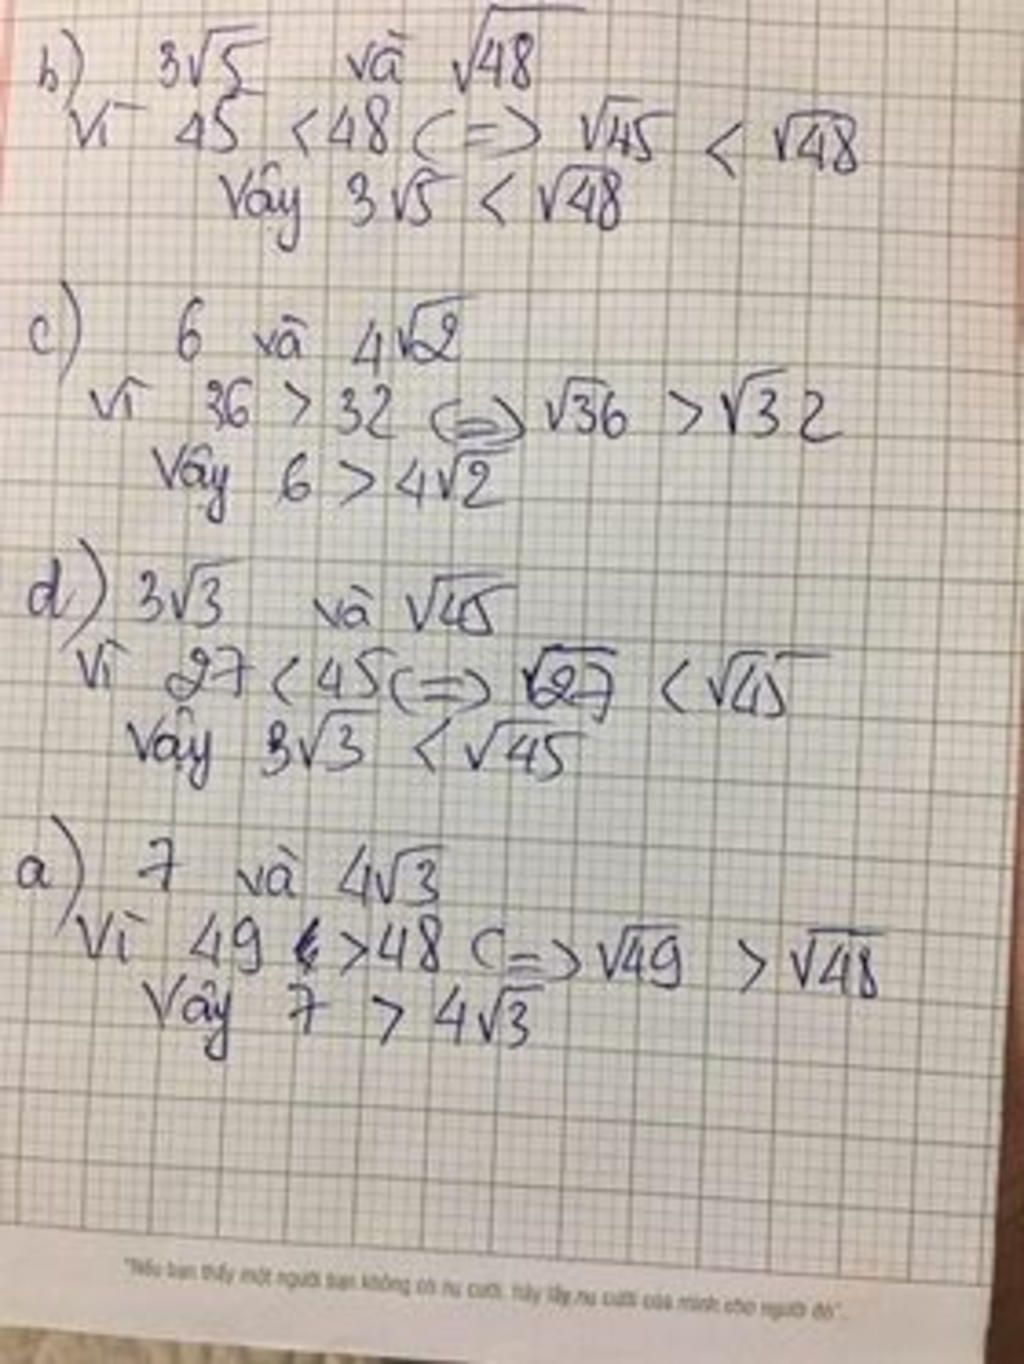 b) 3√5 và √48
Vì 45 < 48 <=> √45 < √48
Vậy 3√5 < √48
c) 6 và 4√2
Vì 36 > 32 <=> √36 > √32
Vậy 6 > 4√2
d) 3√3 và √45
Vì 27 < 45 <=> √27 < √45
Vậy 3√3 < √45
a) 7 và 4√3
Vì 49 > 48 <=> √49 > √48
Vậy 7 > 4√3
"Nếu bạn thấy một người bạn không có nụ cười, hãy lấy nụ cười của mình cho người đó".